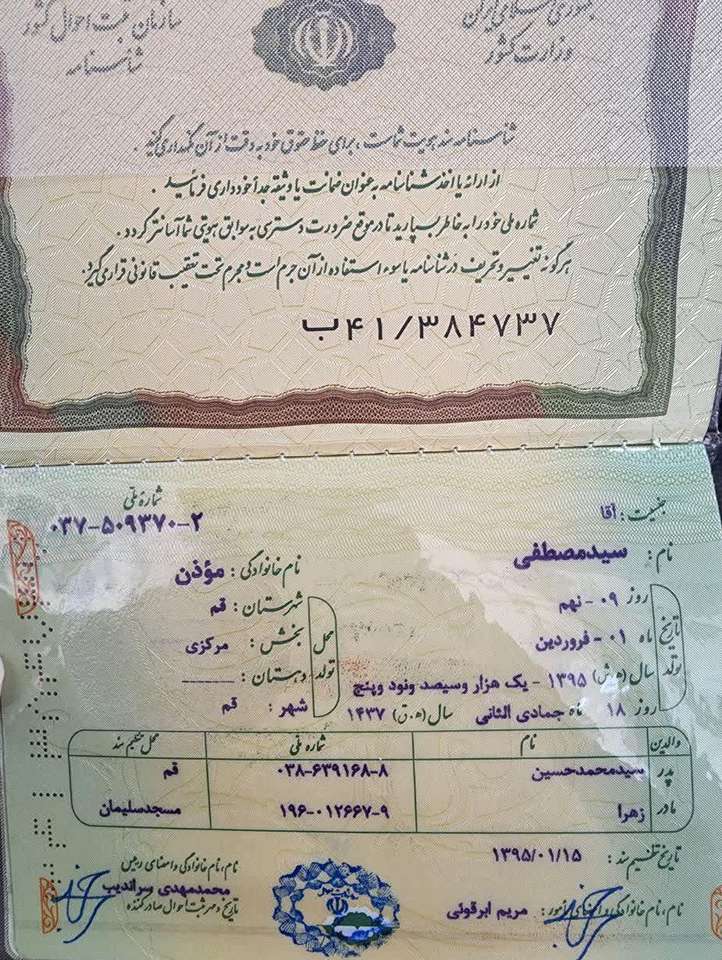 جمهوری اسلامی ایران
وزارت کشور
سازمان ثبت احوال کشور
شناسنامه
شناسنامه سند هویت شماست ، برای حفظ حقوق خود به دقت از آن نگهداری کنید .
از ارائه یا اخذ شناسنامه به عنوان ضمانت یا وثیقه جداً خودداری فرمائید .
شماره ملی خود را به خاطر بسپارید تا در موقع ضرورت دسترسی به سوابق هویتی شما آسانتر گردد .
هرگونه تغییر و تحریف در شناسنامه یا سوء استفاده از آن جرم است و مجرم تحت تعقیب قانونی قرار می‌گیرد.
ب۴۱/۳۸۴۷۳۷
شماره ملی
۰۳۷-۵۰۹۳۷۰-۲
جنسیت : آقا
نام : سیدمصطفی
نام خانوادگی : مؤذن
تاریخ تولد
روز ۰۹ - نهم
ماه ۰۱ - فروردین
سال (ه.ش) ۱۳۹۵ - یک هزار وسیصد ونود وپنج
روز ۱۸ ماه جمادی الثانی سال (ه.ق) ۱۴۳۷
محل تولد
شهرستان : قم
بخش : مرکزی
دهستان : ------
شهر : قم
والدین نام شماره ملی محل تنظیم سند
پدر سیدمحمدحسین ۰۳۸-۶۳۹۱۶۸-۸ قم
مادر زهرا ۱۹۶-۰۱۲۶۶۷-۹ مسجدسلیمان
تاریخ تنظیم سند : ۱۳۹۵/۰۱/۱۵
نام، نام خانوادگی و امضای مأمور : مریم ابرقوئی
نام، نام خانوادگی و امضای رئیس
محمدمهدی سراندیب
تاریخ و مهر ثبت احوال صادرکننده